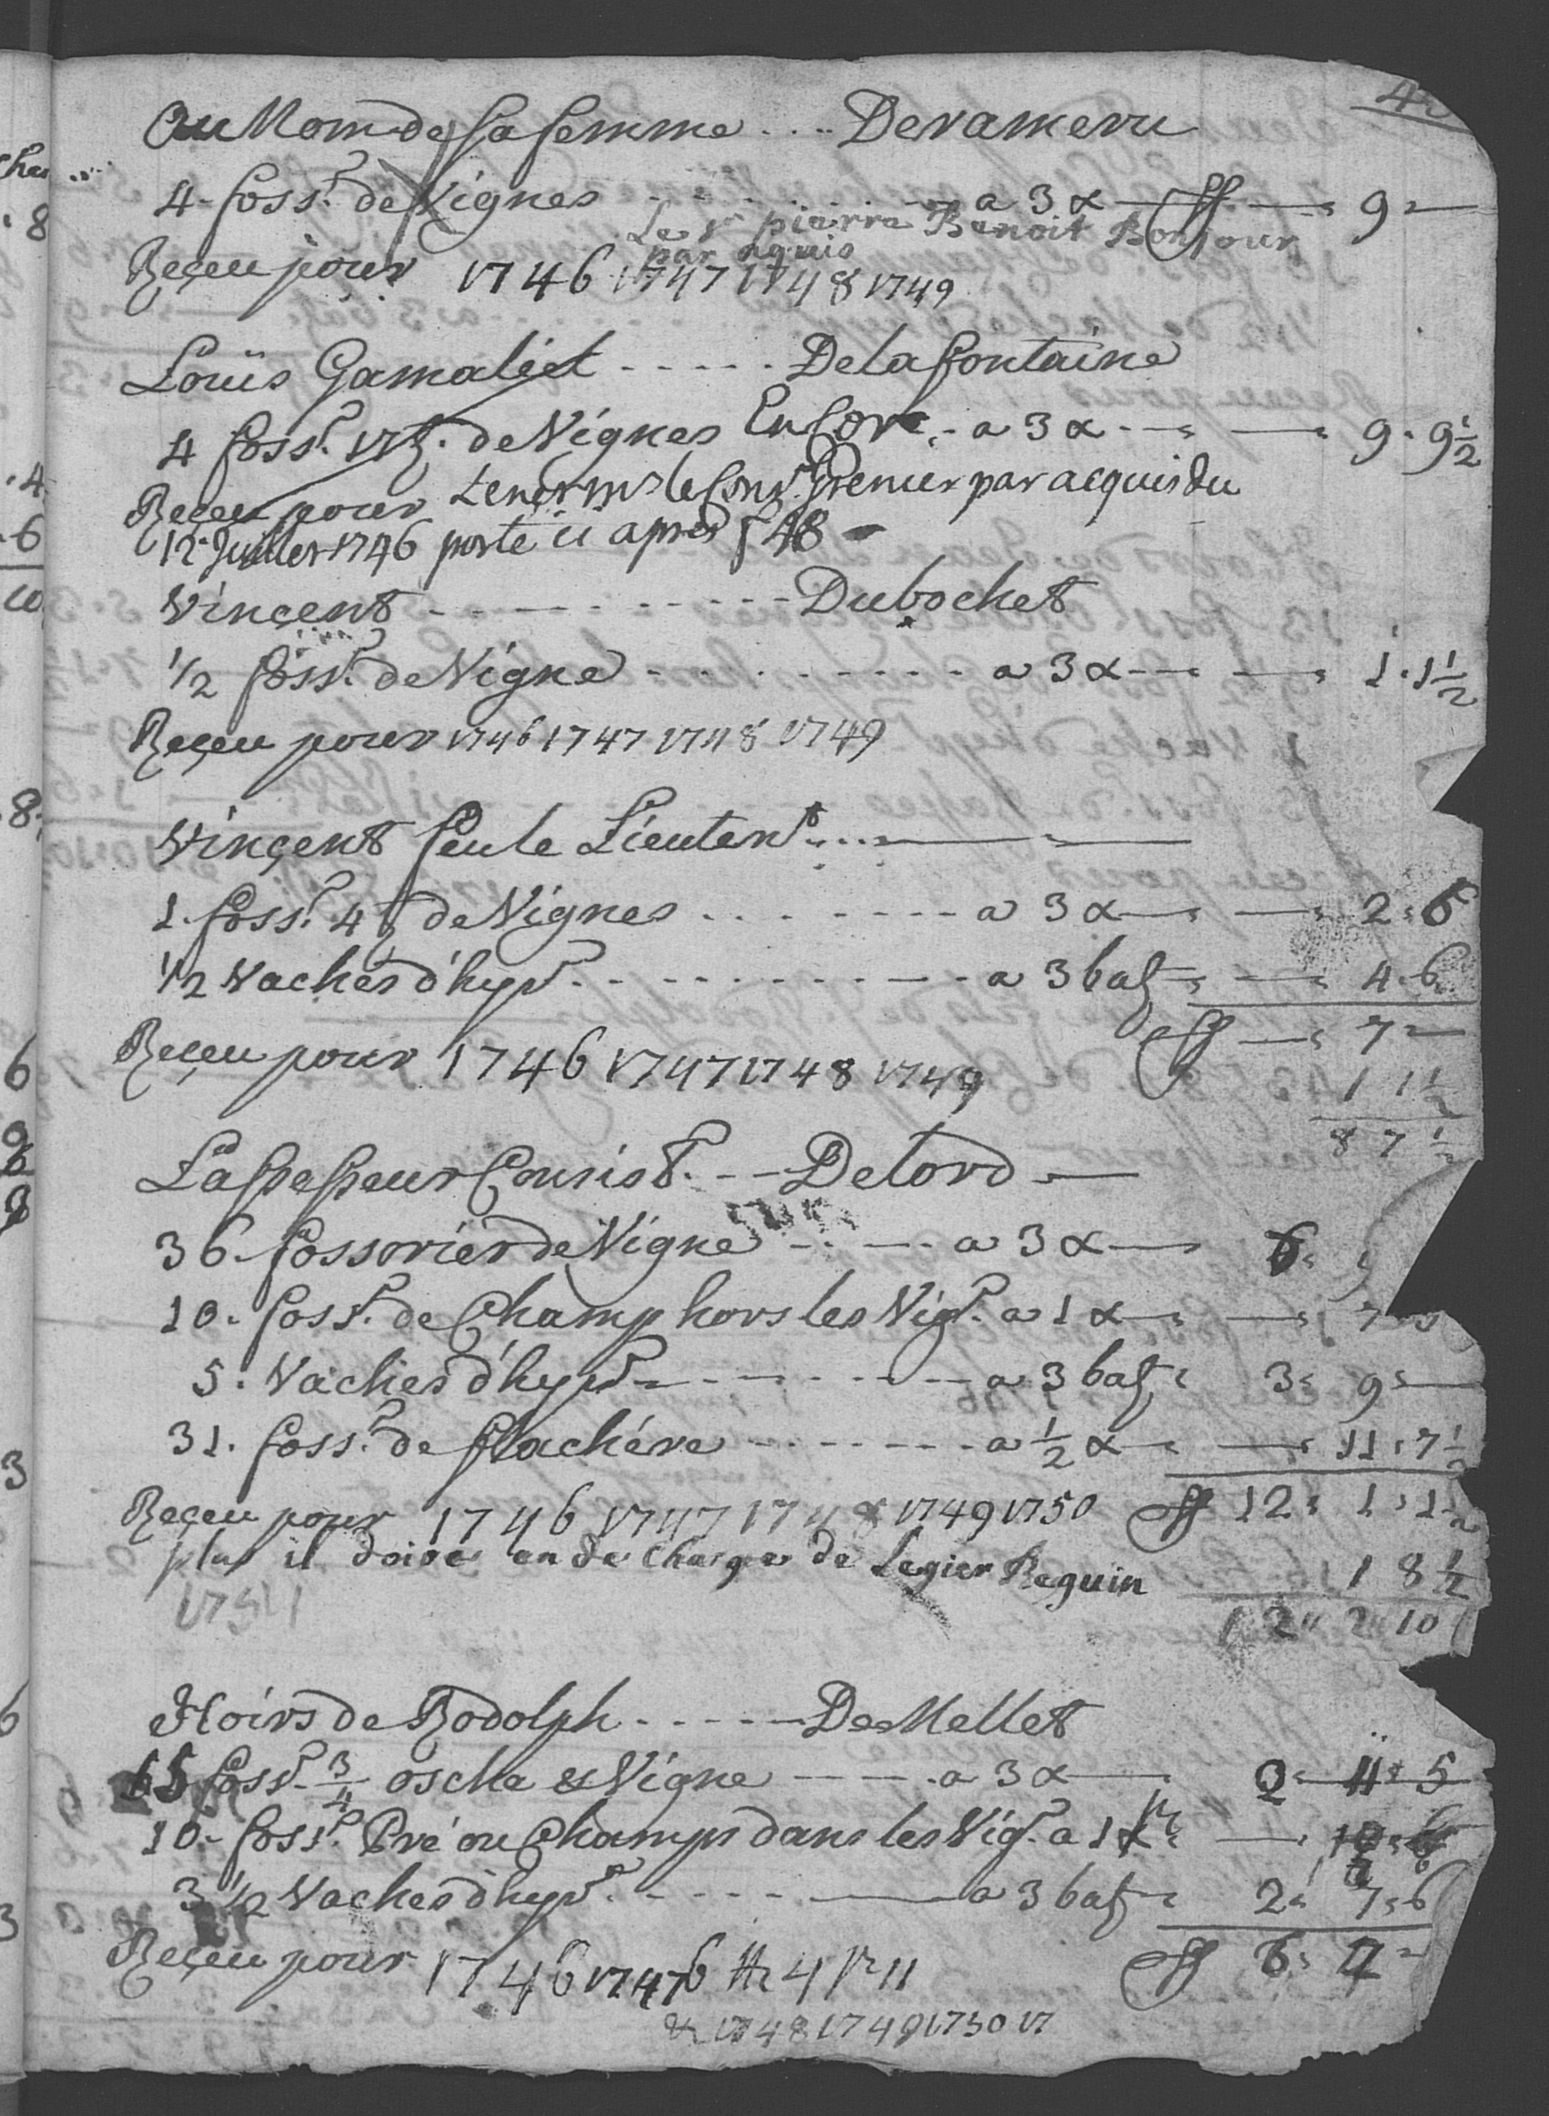 Au Nom de sa femme .... Derameru
4 foss.r de Vignes a 3 x ff 9 -
Le Sr pierre Benoit Bonjour
par aquis
Reçeu pour 1746 1747 1748 1749
Louïs Gamaliel ..... Delafontaine
4 foss.r de Vignes En Cor a 3 x 9 . 9 1/2
Reçeu pour par acquis du
12 Juillet 1746 porté ci apres f 48
Vinçent ........ Dubochet
1/2 foss.r de Vigne ........ a 3 x 1 . 1 1/2
Reçeu pour 1746 1747 1748 1749
Vinçent feu le Lieuten.t ....
1 foss.r 4 de Vignes ........ a 3 x 2 . 6
1/2 Vaches d'hyv.r ........ a 3 batz 4 . 6
ff 7 -
Reçeu pour 1746 1747 1748 1749
1 1 1/2
8 7 1/2
L'assesseur Consist. -- Detord
36 fossorier de Vigne ..... a 3 x 6
10 . foss.r de Champ hors les Vig.s a 1 x 7
5 . Vaches d'hyv.r ....... a 3 batz 3 . 9 -
31 . foss.r de flachére ....... a 1/2 x 11 . 7 1/2
Reçeu pour 1746 1747 1748 1749 1750 ff 12 . 1 . 1 1/2
plus il doive en de charge de Legier Reguin 1 8 1/2
1751 12 " 2 " 10
Hoirs de Rodolph ..... De Mellet
65 foss.r 3/4 osche & Vigne ..... a 3 x
10 . foss.r Pré ou Champs dans les Vig.s a 1
3 1/2 Vaches d'hyv.r ...... a 3 batz 2 . 7 . 6
Reçeu pour 1746 1747 ff 6
& 1748 1749 1750 17